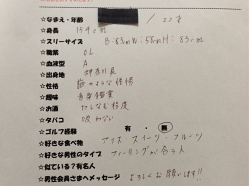 ☆なまえ・年齢 / 22才
☆身長 159cm
☆スリーサイズ B:83 W:58 H:83
☆職業 OL
☆血液型 A
☆出身地 神奈川県
☆性格
☆趣味 音楽鑑賞
☆お酒 たしなむ程度
☆タバコ 吸わない
☆ゴルフ経験 有・無
☆好きな食べ物 アイス スイーツ・フルーツ
☆好きな男性のタイプ フィーリングが合う人
☆似ている?有名人
☆男性会員さまへメッセージ よろしくお願いします!!